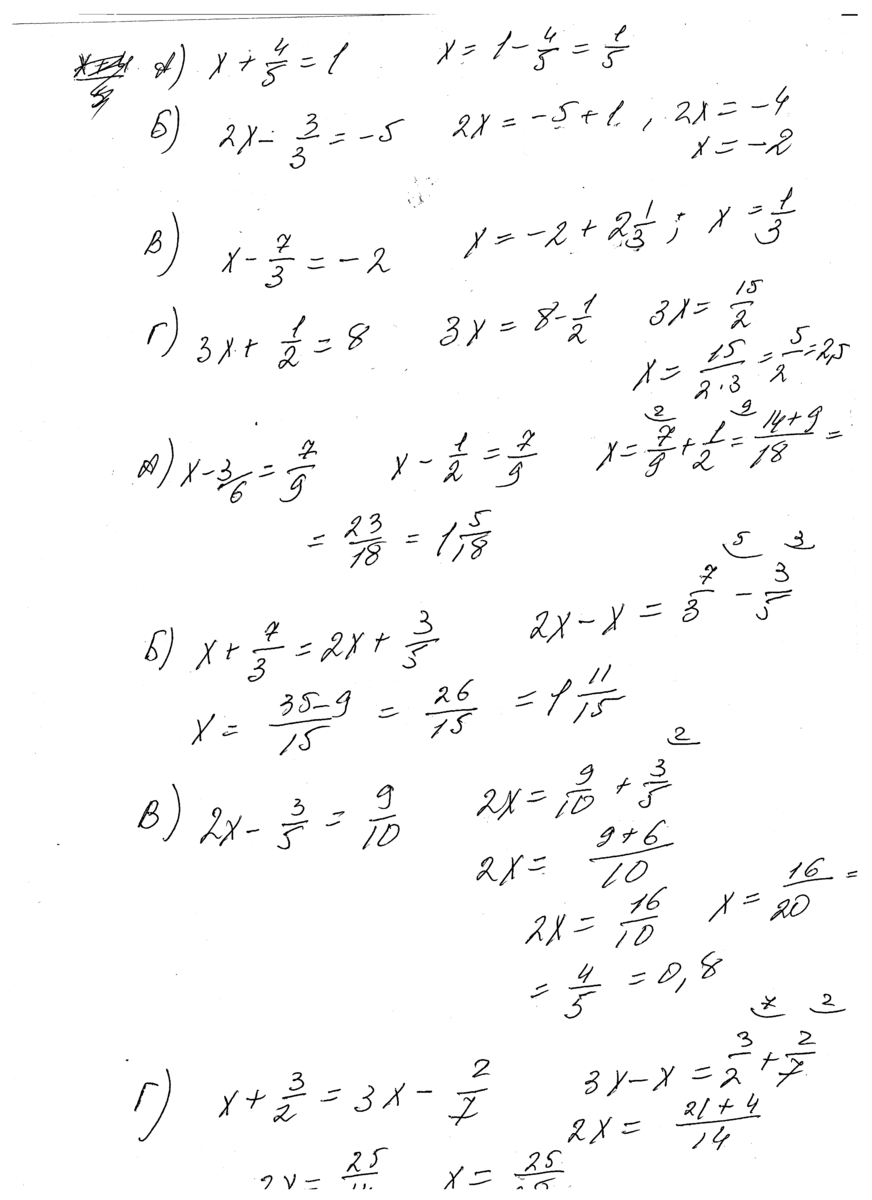 А) x + 4/5 = 1 x = 1 - 4/5 = 1/5
Б) 2x - 3/3 = -5 2x = -5 + 1, 2x = -4
x = -2
В) x - 7/3 = -2 x = -2 + 2 1/3; x = 1/3
Г) 3x + 1/2 = 8 3x = 8 - 1/2 3x = 15/2
x = 15/(2·3) = 5/2 = 2,5
А) x - 3/6 = 7/9 x - 1/2 = 7/9 x = 7/9 (2) + 1/2 (9) = (14+9)/18 =
= 23/18 = 1 5/18
Б) x + 7/3 = 2x + 3/5 2x - x = 7/3 (5) - 3/5 (3)
x = (35-9)/15 = 26/15 = 1 11/15
В) 2x - 3/5 = 9/10 2x = 9/10 + 3/5 (2)
2x = (9+6)/10
2x = 16/10 x = 16/20 =
= 4/5 = 0,8
Г) x + 3/2 = 3x - 2/7 3x - x = 3/2 (7) + 2/7 (2)
2x = (21+4)/14
2x = 25/ x = 25/